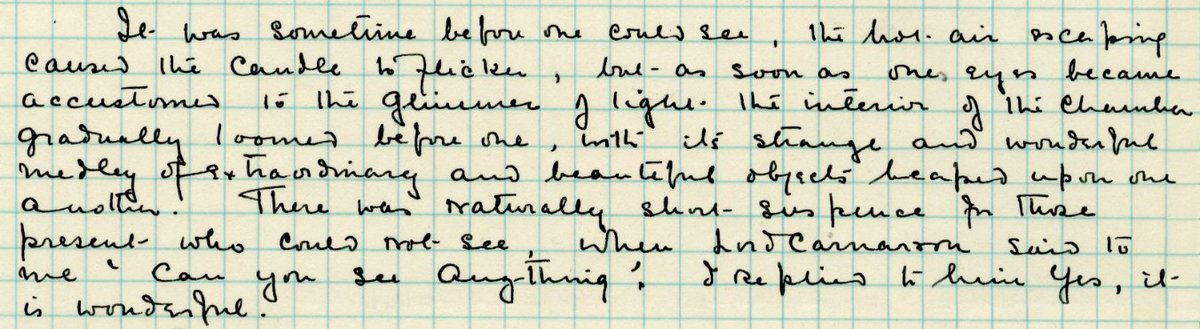 It was sometime before one could see, the hot air escaping
caused the candle to flicker, but as soon as one's eyes became
accustomed to the glimmer of light the interior of the Chamber
gradually loomed before one, with its strange and wonderful
medley of extraordinary and beautiful objects heaped upon one
another. There was naturally short suspence for those
present who could not see, when Lord Carnarvon said to
me ' Can you see anything'. I replied to him Yes, it
is wonderful.